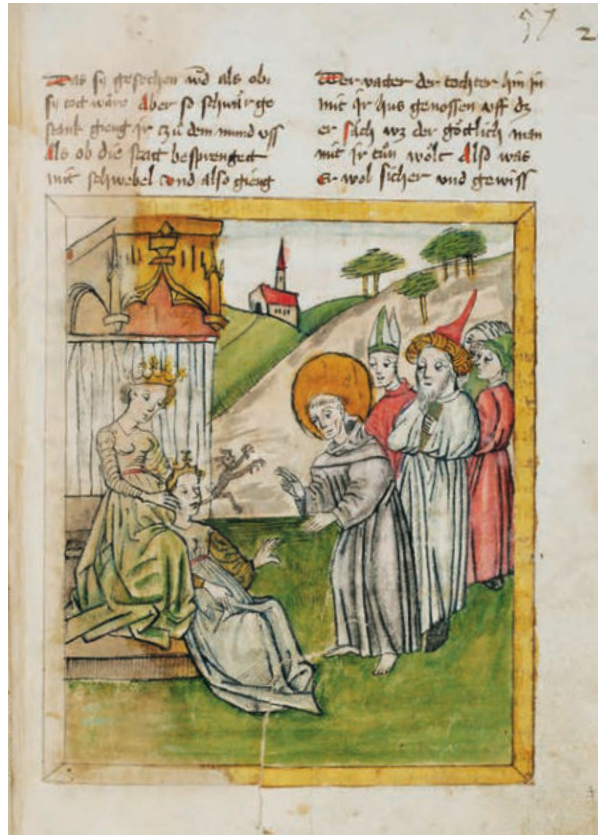 57
2
Das sy geschen vnd als ob
sy tot wäre Aber so schwär ge
stank gieng ir zu dem mund vss
Als ob die statt besprenget
mit schwebel vnd also gieng
Der vatter der tochter hin in
mit ir hus genossen vff dz
er säch wz der götlich man
mit ir tün wölt Also was
Er wol sicher vnd gewiss